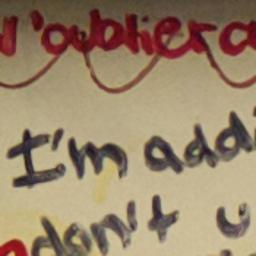 l'oubliera
I'm addi
don't u